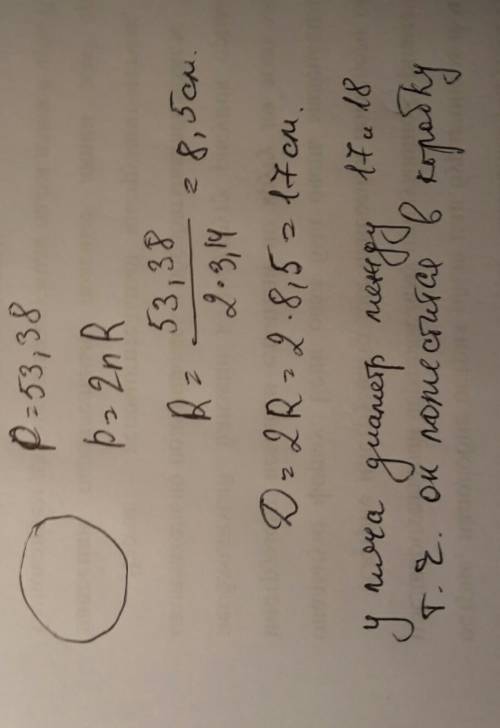 P = 53,38
p = 2πR
R = 53,38 / 2·3,14 = 8,5см.
D = 2R = 2·8,5 = 17см.
У мяча диаметр между 17 и 18
т.ч. он поместится в коробку